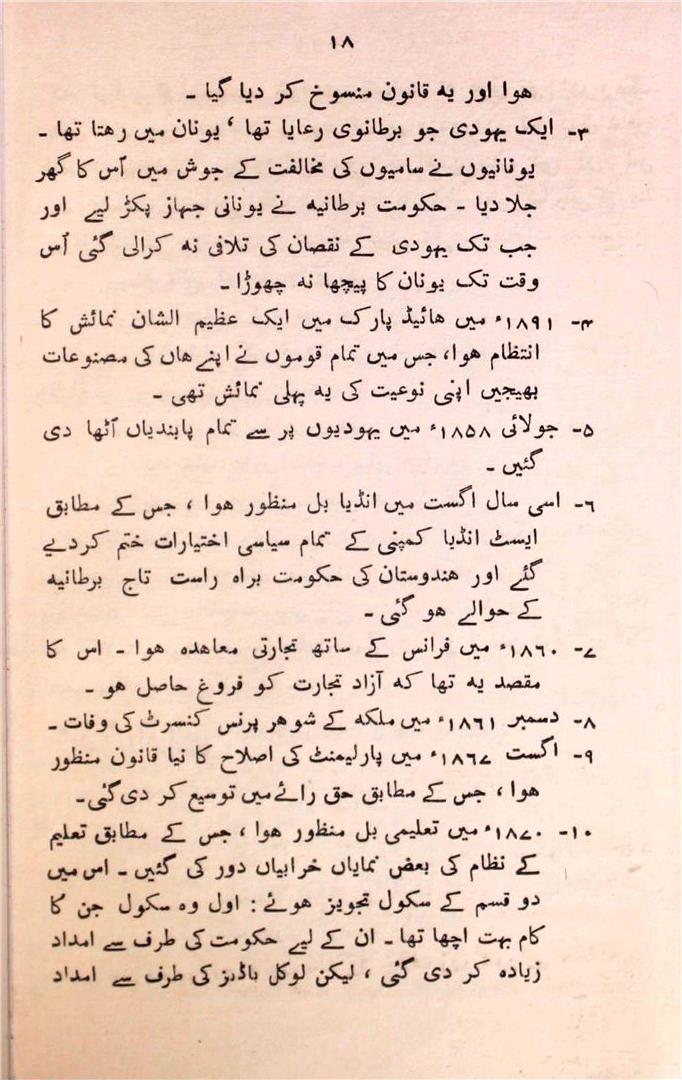 ۱۸
ھوا اور یه قانون منسوخ کر دیا گیا ۔
۳۔ ایک یہودی جو برطانوی رعایا تھا ‘ یونان میں رھتا تھا ۔
یونانیوں نے سامیوں کی مخالفت کے جوش میں اُس کا گھر
جلا دیا ۔ حکومت برطانیه نے یونانی جہاز پکڑ لیے اور
جب تک یہودی کے نقصان کی تلافی نه کرالی گئی اُس
وقت تک یونان کا پیچھا نه چھوڑا ۔
۴۔ ۱۸۹۱ء میں ھائیڈ پارک میں ایک عظیم الشان نمائش کا
انتظام ھوا، جس میں تمام قوموں نے اپنے ھاں کی مصنوعات
بھیجیں اپنی نوعیت کی یه پہلی نمائش تھی ۔
۵۔ جولائی ۱۸۵۸ء میں یہودیوں پر سے تمام پابندیاں اُٹھا دی
گئیں ۔
۶۔ اسی سال اگست میں انڈیا بل منظور ھوا ، جس کے مطابق
ایسٹ انڈیا کمپنی کے تمام سیاسی اختیارات ختم کردیے
گئے اور ھندوستان کی حکومت براہ راست تاج برطانیه
کے حوالے ھو گئی ۔
۷۔ ۱۸۶۰ء میں فرانس کے ساتھ تجارتی معاھدہ ھوا ۔ اس کا
مقصد یه تھا که آزاد تجارت کو فروغ حاصل ھو ۔
۸۔ دسمبر ۱۸۶۱ء میں ملکه کے شوھر پرنس کنسرٹ کی وفات ۔
۹۔ اگست ۱۸۶۷ء میں پارلیمنٹ کی اصلاح کا نیا قانون منظور
ھوا ، جس کے مطابق حق رائے میں توسیع کر دی گئی۔
۱۰۔ ۱۸۷۰ء میں تعلیمی بل منظور ھوا ، جس کے مطابق تعلیم
کے نظام کی بعض نمایاں خرابیاں دور کی گئیں ۔ اس میں
دو قسم کے سکول تجویز ھوئے : اول وہ سکول جن کا
کام بہت اچھا تھا ۔ ان کے لیے حکومت کی طرف سے امداد
زیادہ کر دی گئی ، لیکن لوکل باڈیز کی طرف سے امداد